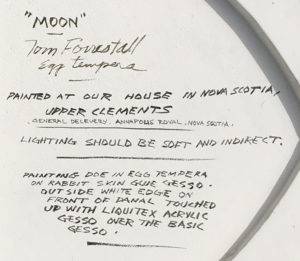 "MOON"
Tom Forrestall
Egg tempera
PAINTED AT OUR HOUSE IN NOVA SCOTIA,
UPPER CLEMENTS
GENERAL DELEVERY, ANNAPOLIS ROYAL, NOVA SCOTIA.
LIGHTING SHOULD BE SOFT AND INDIRECT.
PAINTING DOE IN EGG TEMPERA
ON RABBIT SKIN GLUE GESSO.
OUTSIDE WHITE EDGE ON
FRONT OF PANAL TOUCHED
UP WITH LIQUITEX ACRYLIC
GESSO OVER THE BASIC
GESSO.